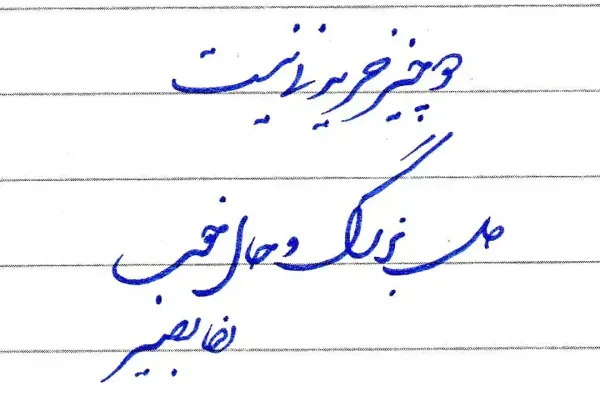 دو چیز خریدنی نیست
دل بزرگ و حال خوب